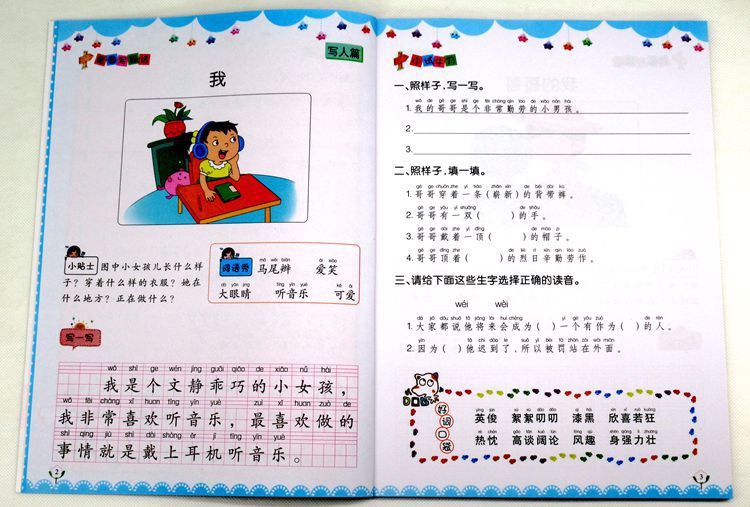 写人篇
我
小贴士 图中小女孩儿长什么样
子？穿着什么样的衣服？她在
什么地方？正在做什么？
词语秀
mǎ wěi biàn ài xiào
马尾辫 爱笑
dà yǎn jing tīng yīn yuè kě ài
大眼睛 听音乐 可爱
写一写
wǒ shì gè wén jìng guāi qiǎo de xiǎo nǚ hái
我是个文静乖巧的小女孩，
wǒ fēi cháng xǐ huan tīng yīn yuè zuì xǐ huan zuò de
我非常喜欢听音乐，最喜欢做的
shì qing jiù shì dài shàng ěr jī tīng yīn yuè
事情就是戴上耳机听音乐。
2
小试牛刀
一、照样子，写一写。
wǒ de gē ge shì gè fēi cháng qín láo de xiǎo nán hái
1. 我的哥哥是个非常勤劳的小男孩。
2.
3.
二、照样子，填一填。
gē ge chuān zhe yì tiáo zhǎn xīn de bēi dài kù
1. 哥哥穿着一条(崭新)的背带裤。
gē ge yǒu yì shuāng de shǒu
2. 哥哥有一双( )的手。
gē ge dài zhe yì dǐng de mào zi
3. 哥哥戴着一顶( )的帽子。
gē ge dǐng zhe de liè rì xīn qín láo zuò
4. 哥哥顶着( )的烈日辛勤劳作。
三、请给下面这些生字选择正确的读音。
wéi wèi
dà jiā dōu shuō tā jiāng lái huì chéng yí gè yǒu zuò de rén
1. 大家都说他将来会成为( )一个有作为( )的人。
yīn tā chí dào le suǒ yǐ bèi fá zhàn zài wài miàn
2. 因为( )他迟到了，所以被罚站在外面。
好词口袋
yīng jùn xù xù dāo dāo qī hēi xīn xǐ ruò kuáng
英俊 絮絮叨叨 漆黑 欣喜若狂
rè chén gāo tán kuò lùn fēng qù shēn qiáng lì zhuàng
热忱 高谈阔论 风趣 身强力壮
3